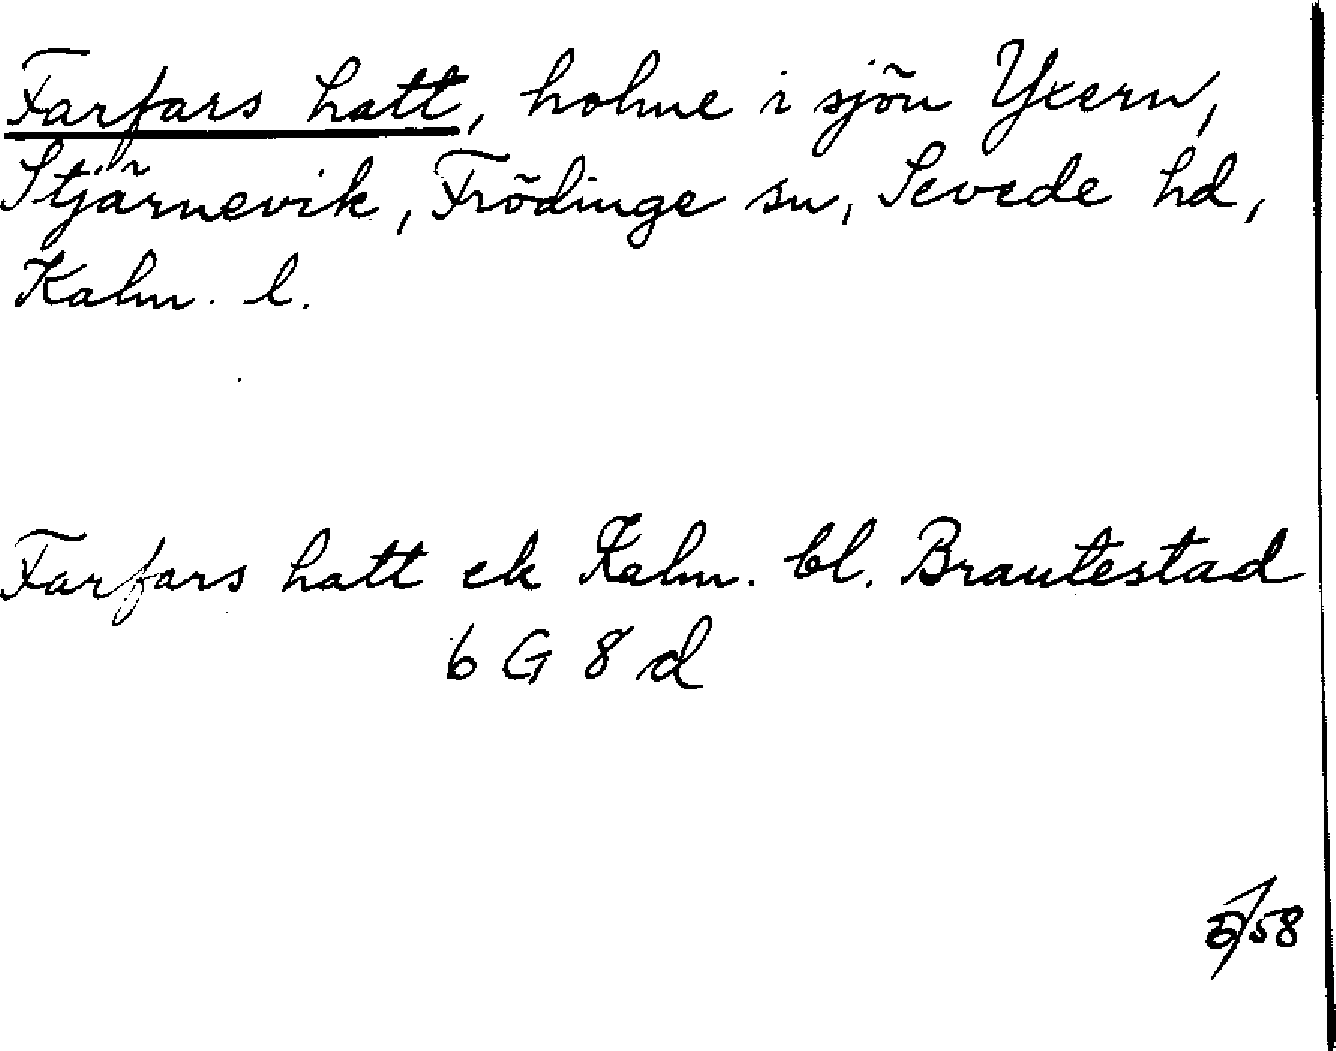 Farfars hatt, holme i sjön Yxern,
Stjärnevik, Frödinge sn, Sevede hd,
Kalm. l.
Farfars hatt ek Kalm. bl. Brantestad
6 G 8 d
5/58